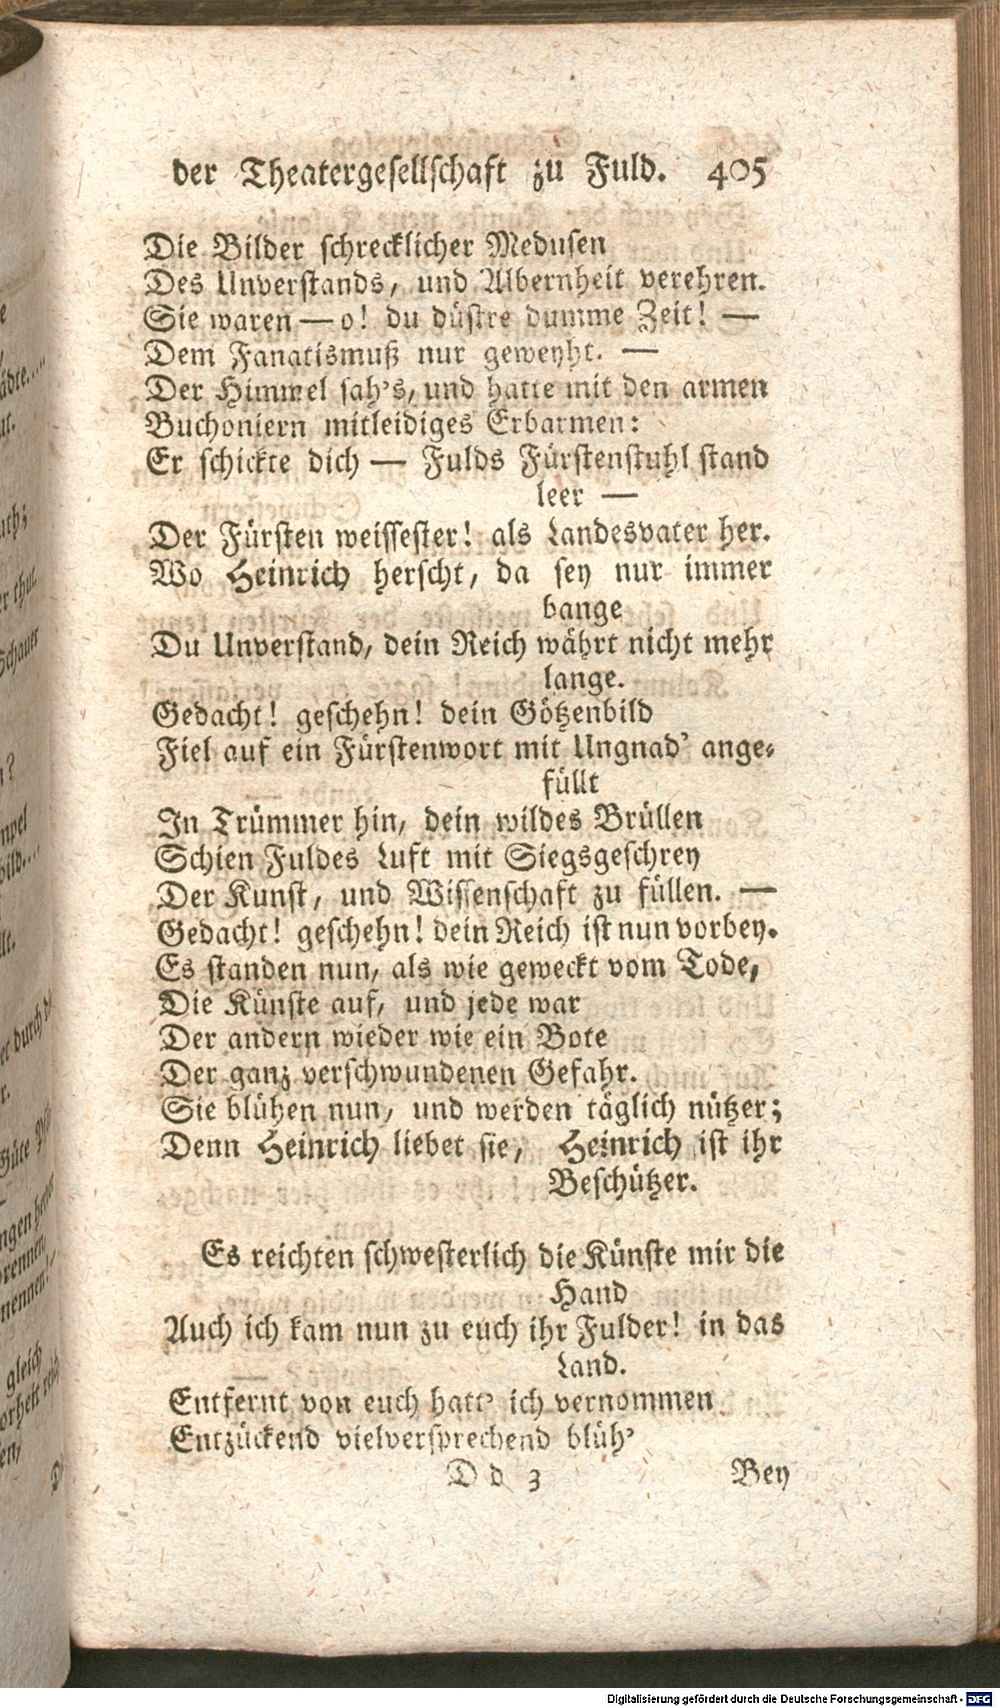 der Theatergesellschaft zu Fuld. 405
Die Bilder schrecklicher Medusen
Des Unverstands, und Albernheit verehren.
Sie waren — o! du düstre dumme Zeit! —
Dem Fanatismuß nur geweyht. —
Der Himmel sah's, und hatte mit den armen
Buchoniern mitleidiges Erbarmen:
Er schickte dich — Fulds Fürstenstuhl stand
leer —
Der Fürsten weissester! als Landesvater her.
Wo Heinrich herscht, da sey nur immer
bange
Du Unverstand, dein Reich währt nicht mehr
lange.
Gedacht! geschehn! dein Götzenbild
Fiel auf ein Fürstenwort mit Ungnad' ange-
füllt
In Trümmer hin, dein wildes Brüllen
Schien Fuldes Luft mit Siegsgeschrey
Der Kunst, und Wissenschaft zu füllen. —
Gedacht! geschehn! dein Reich ist nun vorbey.
Es standen nun, als wie geweckt vom Tode,
Die Künste auf, und jede war
Der andern wieder wie ein Bote
Der ganz verschwundenen Gefahr.
Sie blühen nun, und werden täglich nützer;
Denn Heinrich liebet sie, Heinrich ist ihr
Beschützer.
Es reichten schwesterlich die Künste mir die
Hand
Auch ich kam nun zu euch ihr Fulder! in das
Land.
Entfernt von euch hatt' ich vernommen
Entzückend vielversprechend blüh'
D d 3 Bey
Digitalisierung gefördert durch die Deutsche Forschungsgemeinschaft - DFG